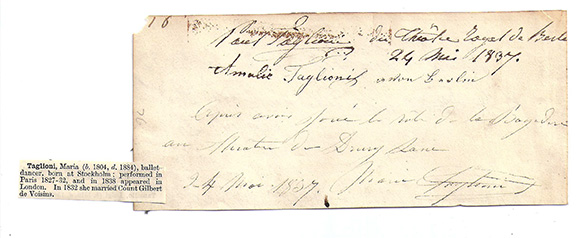 16
Paul Taglioni du théâtre Royal de Berlin
24 Mai 1837.
Amalie Taglioni von Berlin
après avoir joué le rôle de la Bayadère
au Theatre de Drury Lane
24 Mai 1837. Marie Taglioni
Taglioni, Maria (b. 1804, d. 1884), ballet-
dancer, born at Stockholm; performed in
Paris 1827-32, and in 1838 appeared in
London. In 1832 she married Count Gilbert
de Voisins.